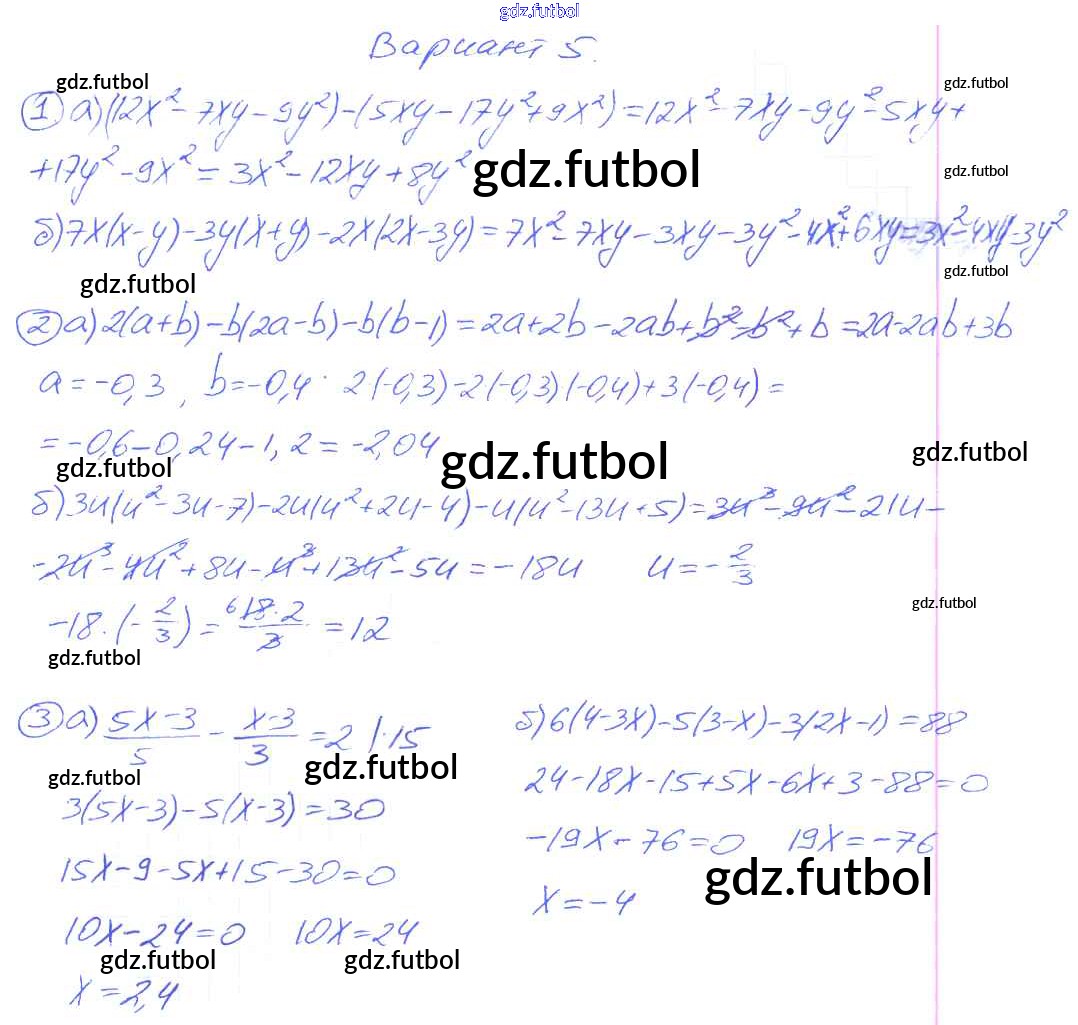 gdz.futbol
Вариант 5.
gdz.futbol
gdz.futbol
① а) (12x² - 7xy - 9y²) - (5xy - 17y² + 9x²) = 12x² - 7xy - 9y² - 5xy +
+ 17y² - 9x² = 3x² - 12xy + 8y²
gdz.futbol
gdz.futbol
б) 7x(x - y) - 3y(x + y) - 2x(2x - 3y) = 7x² - 7xy - 3xy - 3y² - 4x² + 6xy = 3x² - 4xy - 3y²
gdz.futbol
gdz.futbol
② а) 2(a + b) - b(2a - b) - b(b - 1) = 2a + 2b - 2ab + b² - b² + b = 2a - 2ab + 3b
a = -0,3 , b = -0,4. 2(-0,3) - 2(-0,3)(-0,4) + 3(-0,4) =
= -0,6 - 0,24 - 1,2 = -2,04
gdz.futbol
gdz.futbol
gdz.futbol
б) 3u(u² - 3u - 7) - 2u(u² + 2u - 4) - u(u² - 13u + 5) = 3u³ - 9u² - 21u -
- 2u³ - 4u² + 8u - u³ + 13u² - 5u = -18u u = -2/3
gdz.futbol
-18 · (-2/3) = 6 18·2/3 = 12
gdz.futbol
③ а) (5x - 3)/5 - (x - 3)/3 = 2 | · 15
gdz.futbol
gdz.futbol
3(5x - 3) - 5(x - 3) = 30
15x - 9 - 5x + 15 - 30 = 0
10x - 24 = 0 10x = 24
gdz.futbol
gdz.futbol
x = 2,4
б) 6(4 - 3x) - 5(3 - x) - 3(2x - 1) = 88
24 - 18x - 15 + 5x - 6x + 3 - 88 = 0
-19x - 76 = 0 19x = -76
gdz.futbol
x = -4